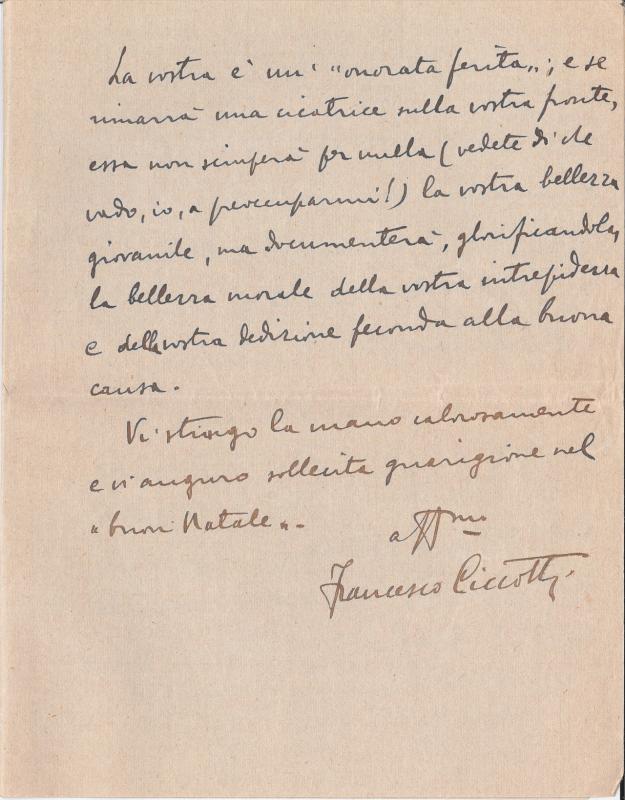 La vostra è un' "onorata ferita„; e se
rimarrà una cicatrice sulla vostra fronte,
essa non sciuperà per nulla (vedete di che
vado, io, a preoccuparmi!) la vostra bellezza
giovanile, ma documenterà, glorificandola,
la bellezza morale della vostra intrepidezza
e della vostra dedizione feconda alla buona
causa.
Vi stringo la mano calorosamente
e vi auguro sollecita guarigione nel
"buon Natale„.
aff.mo
Francesco Ciccotti